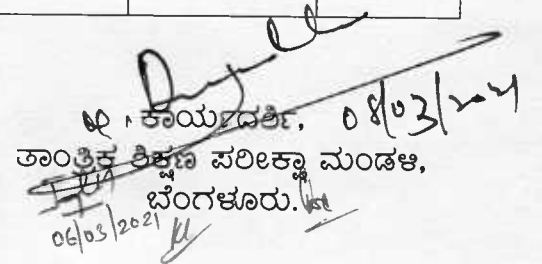 ಕಾರ್ಯದರ್ಶಿ, 08/03/2021
ತಾಂತ್ರಿಕ ಶಿಕ್ಷಣ ಪರೀಕ್ಷಾ ಮಂಡಳಿ,
ಬೆಂಗಳೂರು.
06/03/2021